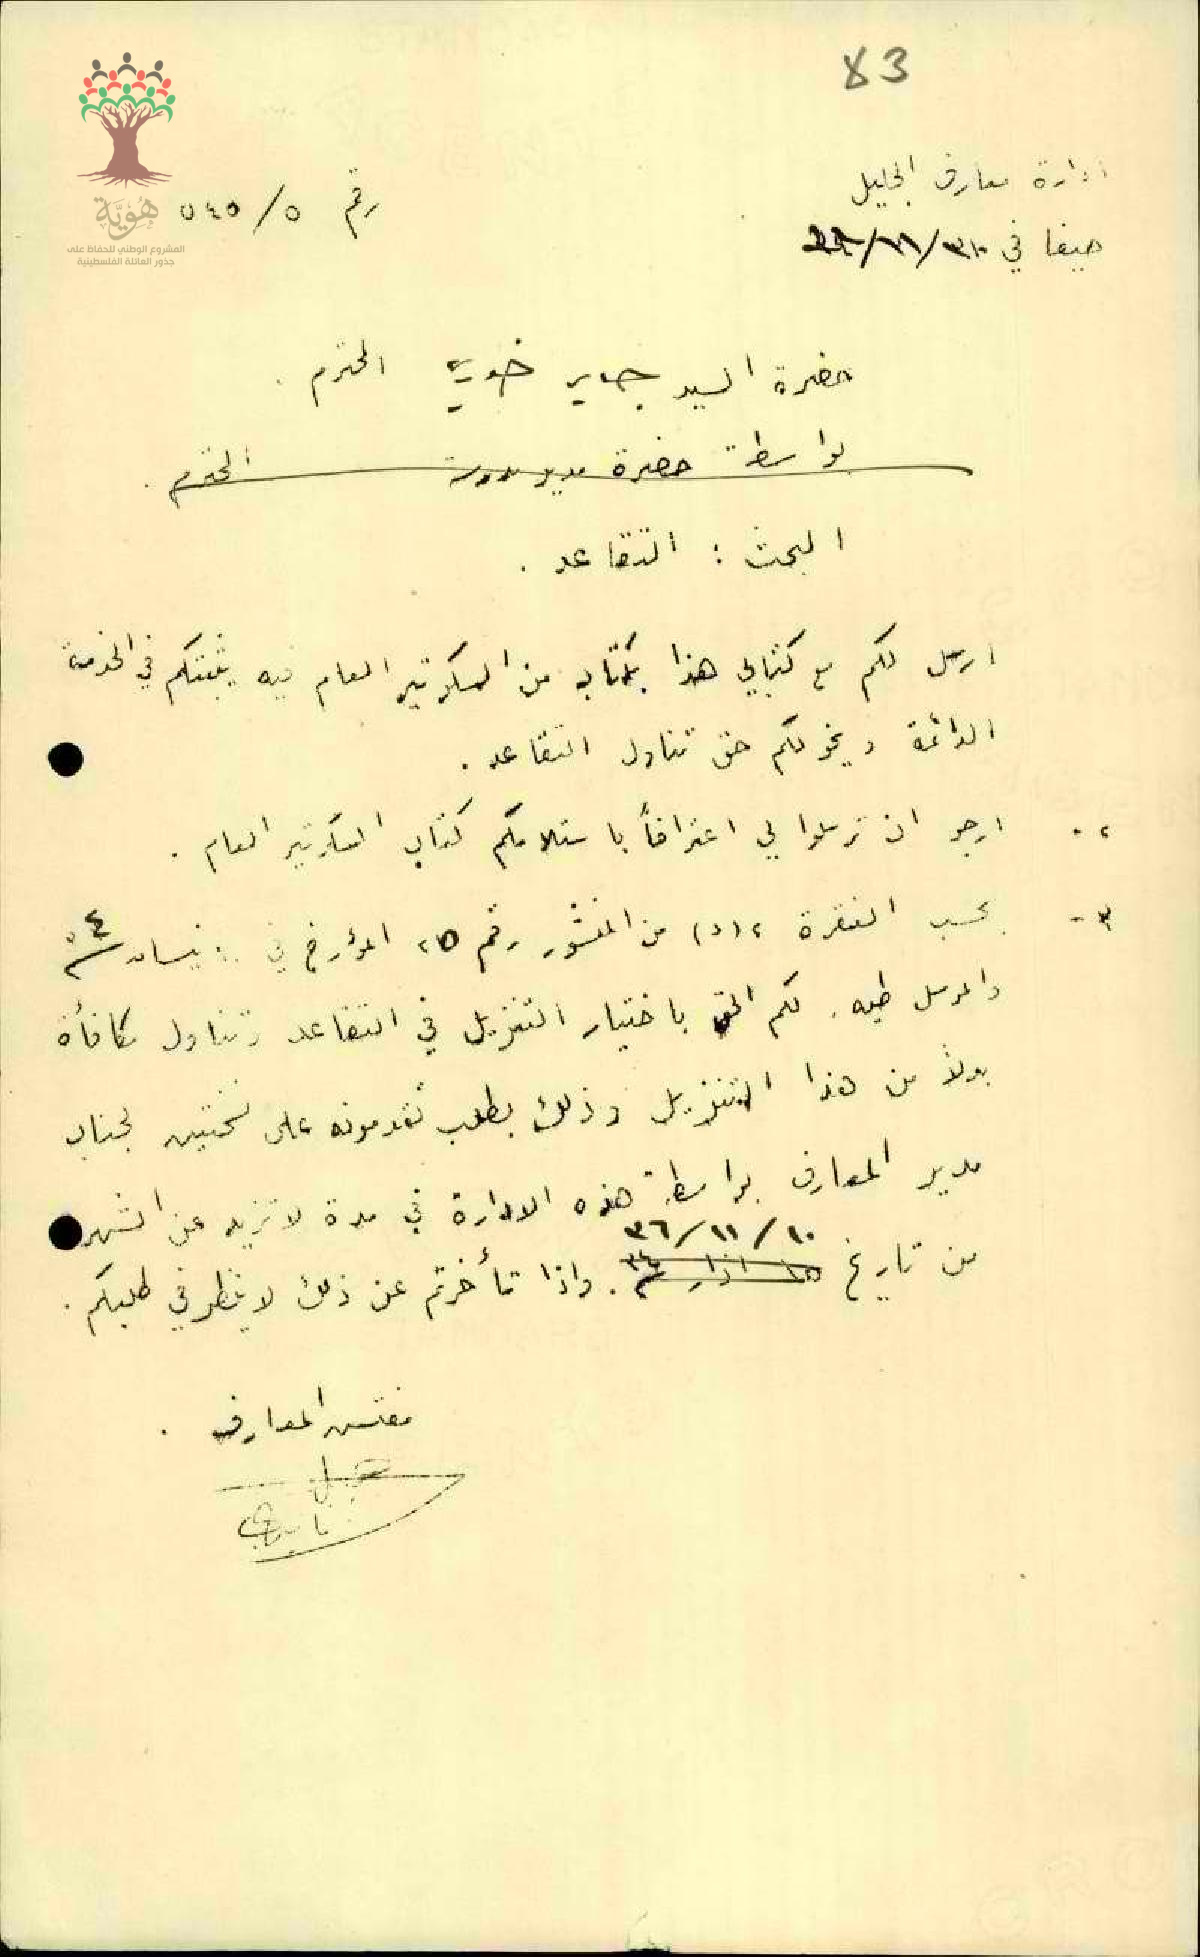 83
هُوِيَّة
المشروع الوطني للحفاظ على
جذور العائلة الفلسطينية
ادارة معارف الجليل
رقم ٥/٥٤٥
حيفا في
حضرة السيد المحترم .
بواسطة حضرة مدير مدرسة المحترم .
البحث : التقاعد .
ارسل لكم مع كتابي هذا كتاب من السكرتير العام فيه يثبتكم في الخدمة
الدائمة ويخولكم حق تناول التقاعد .
٢- ارجو ان ترسلوا لي اعترافاً باستلامكم كتاب السكرتير العام .
٣- بحسب الفقرة من المنشور رقم ٢٥ المؤرخ في نيسان
والمرسل طيه . لكم الحق باختيار التنزيل في التقاعد وتناول مكافأة
بدلاً من هذا التنزيل وذلك بطلب تقدمونه على نسختين لجناب
مدير المعارف بواسطة هذه الادارة في مدة لا تزيد عن الشهر
من تاريخ ١٠/١١/٣٦ . واذا تأخرتم عن ذلك لا ينظر في طلبكم .
مفتش المعارف .